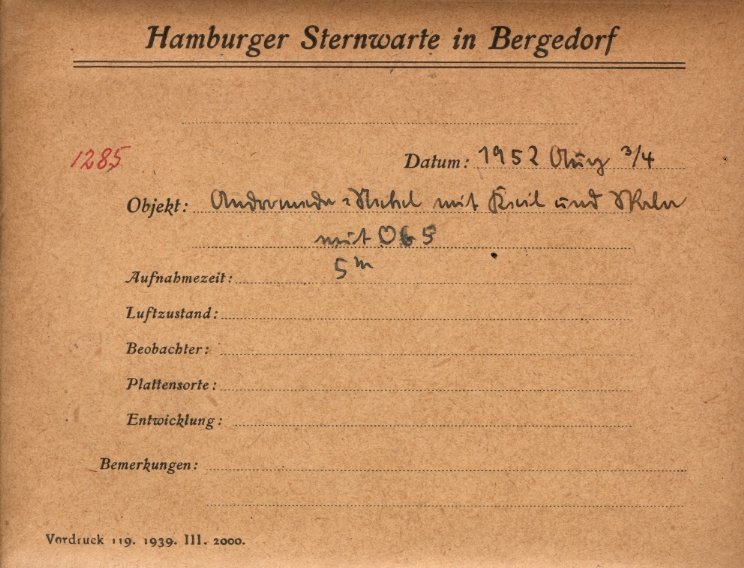 Hamburger Sternwarte in Bergedorf
1285
Datum: 1952 Aug 3/4
Objekt: Andromeda-Nebel mit Keil und Skala
mit OG5
Aufnahmezeit: 5m
Luftzustand:
Beobachter:
Plattensorte:
Entwicklung:
Bemerkungen:
Vordruck 119. 1939. III. 2000.